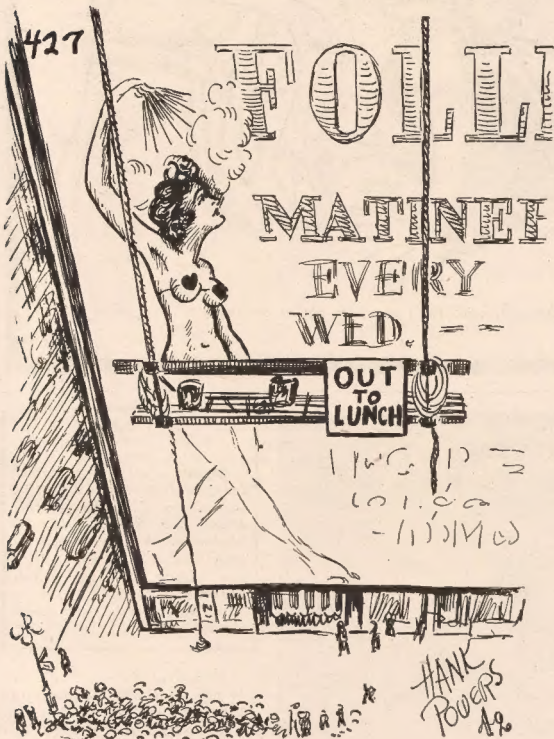 427
FOLLI
MATINEE
EVERY
WED. --
OUT
TO
LUNCH
HANK
POWERS